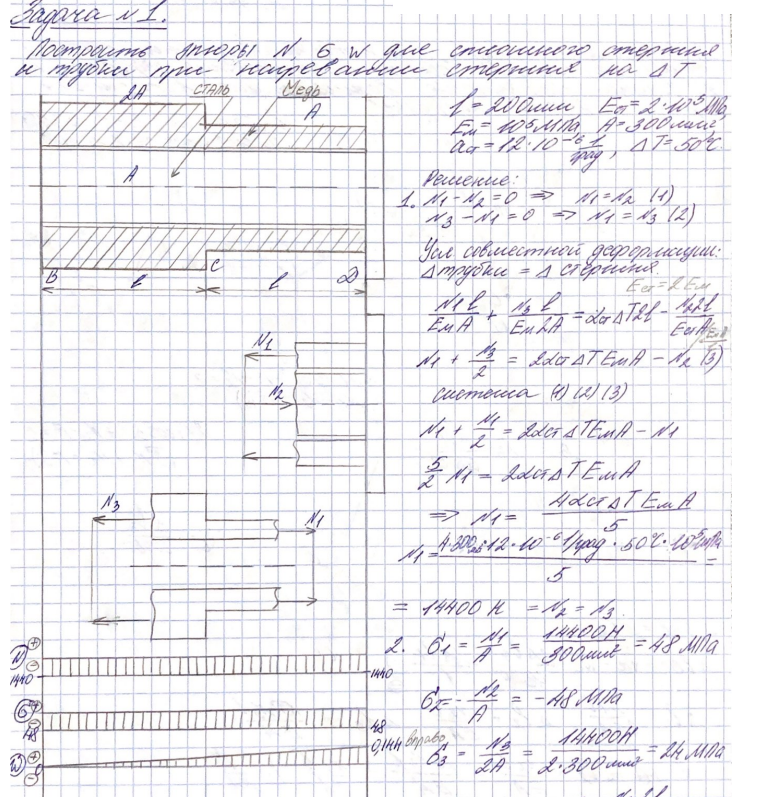 Задача №1.
Построить эпюры N, б, W для стального стержня
и трубки при нагревании стержня на ΔT
2A сталь Медь A
l = 200мм Eст = 2·10⁵ МПа,
Eм = 10⁵ МПа, A = 300мм²
αст = 12·10⁻⁶ 1/град, ΔT = 50°C
A
Решение:
1. N₁ - N₂ = 0 => N₁ = N₂ (1)
N₃ - N₁ = 0 => N₁ = N₃ (2)
Усл совместной деформации:
Δтрубки = Δ стержня
Eст = 2Eм
B l C l D
N₁l/EмA + N₃l/Eм2A = αстΔT2l - N₂2l/EстA
N₁ + N₃/2 = 2αстΔTEмA - N₂ (3)
система (1) (2) (3)
N₁
N₂
N₁ + N₁/2 = 2αстΔTEмA - N₁
5/2 N₁ = 2αстΔTEмA
=> N₁ = 4αстΔTEмA/5
N₃ N₁
N₁ = 4·300мм²·12·10⁻⁶ 1/град·50°C·10⁵МПа/5 =
= 14400 Н = N₂ = N₃
2. б₁ = N₁/A = 14400Н/300мм² = 48 МПа
N + - 1440 1440
б₂ = -N₂/A = -48 МПа
б + - 48 48
б₃ = N₃/2A = 14400Н/2·300мм² = 24 МПа
W + - 0,144 вправо